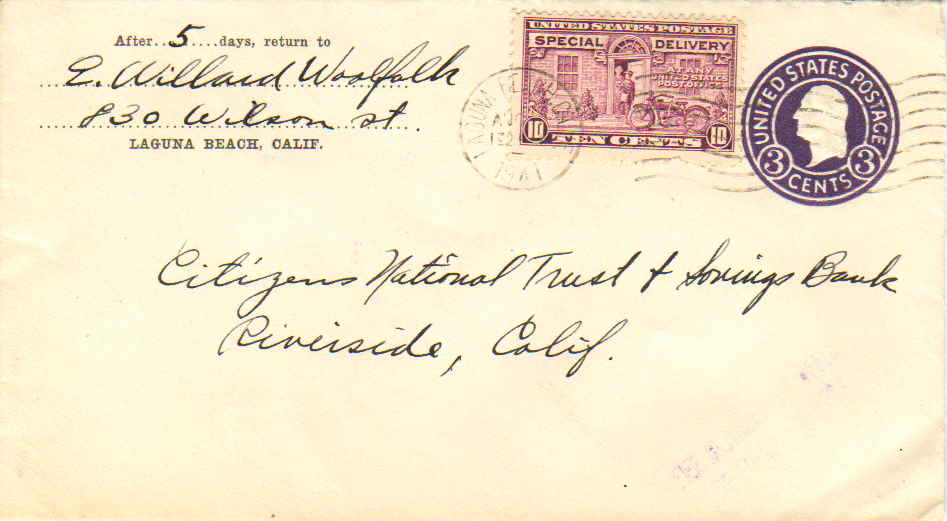 After 5 days, return to
E. Willard Woolfolk
830 Wilson st.
LAGUNA BEACH, CALIF.
UNITED STATES POSTAGE
SPECIAL DELIVERY
AT ANY
UNITED STATES
POST OFFICE
10 TEN CENTS 10
UNITED STATES POSTAGE
3 CENTS 3
LAGUNA BEACH
1941
Citizens National Trust & Savings Bank
Riverside, Calif.